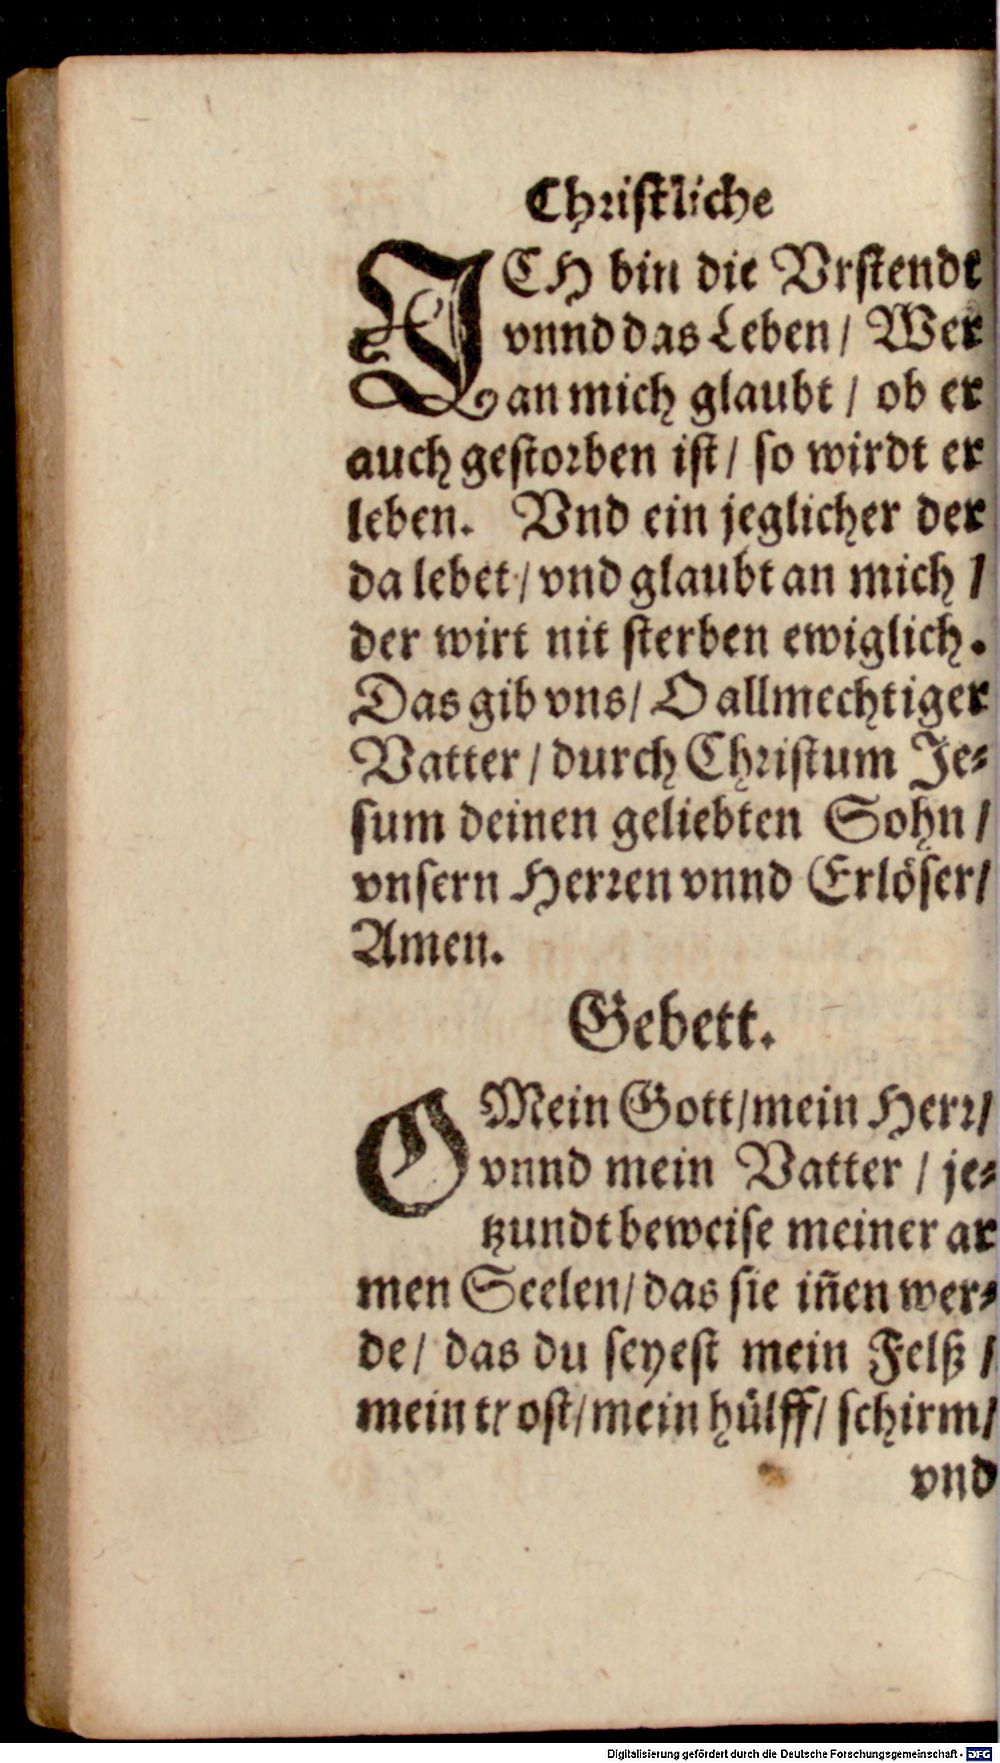 Christliche
ICH bin die Vrstendt
vnnd das Leben / Wer
an mich glaubt / ob er
auch gestorben ist / so wirdt er
leben. Vnd ein jeglicher der
da lebet / vnd glaubt an mich /
der wirt nit sterben ewiglich.
Das gib vns / O allmechtiger
Vatter / durch Christum Je⸗
sum deinen geliebten Sohn /
vnsern Herren vnnd Erlöser /
Amen.
Gebett.
O Mein Gott / mein Herr /
vnnd mein Vatter / je⸗
tzundt beweise meiner ar
men Seelen / das sie iñen wer⸗
de / das du seyest mein Felß /
mein trost / mein hülff / schirm /
vnd
Digitalisierung gefördert durch die Deutsche Forschungsgemeinschaft - DFG